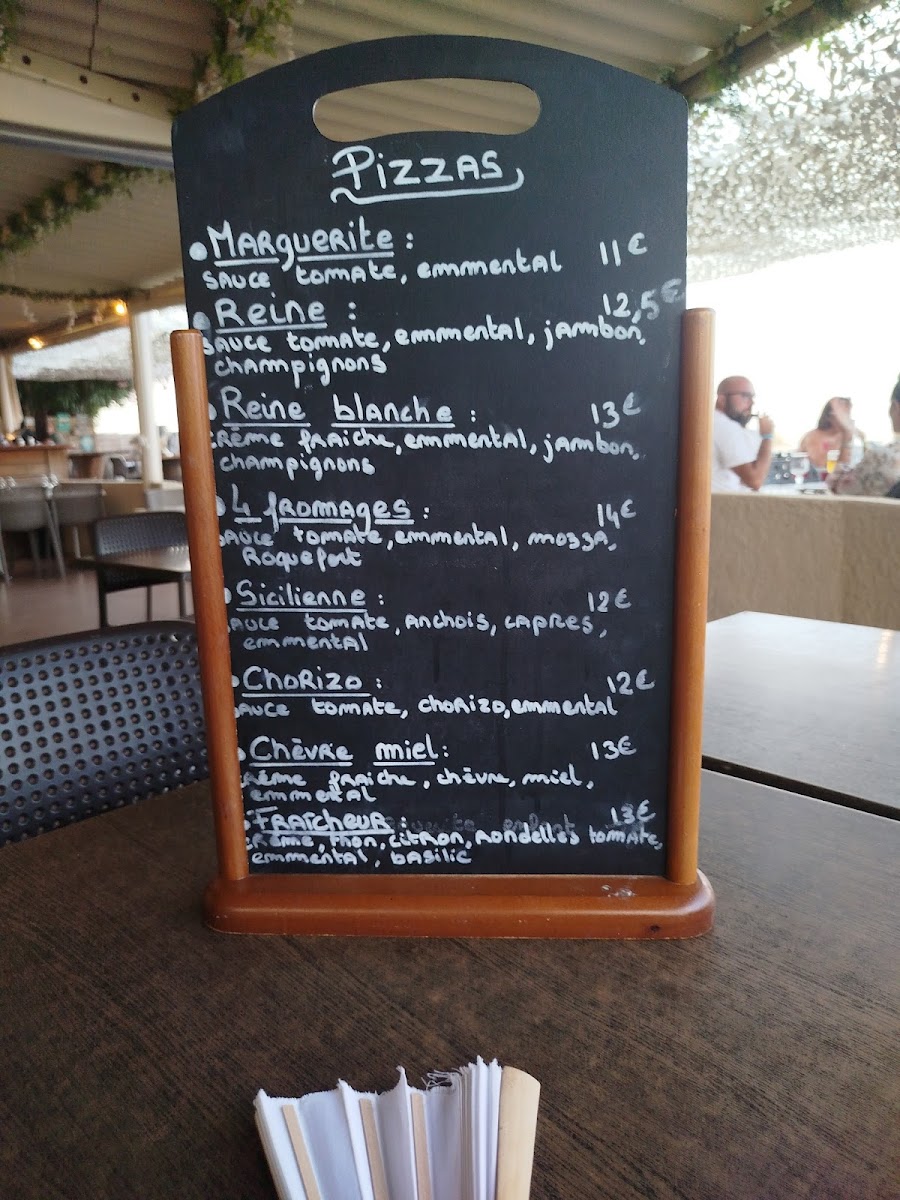 Pizzas
• Marguerite : 11€
sauce tomate, emmental
• Reine : 12,5€
sauce tomate, emmental, jambon,
champignons
• Reine blanche : 13€
crème fraiche, emmental, jambon,
champignons
• 4 fromages : 14€
sauce tomate, emmental, mozza,
Roquefort
• Sicilienne : 12€
sauce tomate, anchois, capres,
emmental
• Chorizo : 12€
sauce tomate, chorizo, emmental
• Chèvre miel : 13€
crème fraiche, chèvre, miel,
emmental
• Fraîcheur : 13€
crème, thon, citron, rondelles tomate,
emmental, basilic